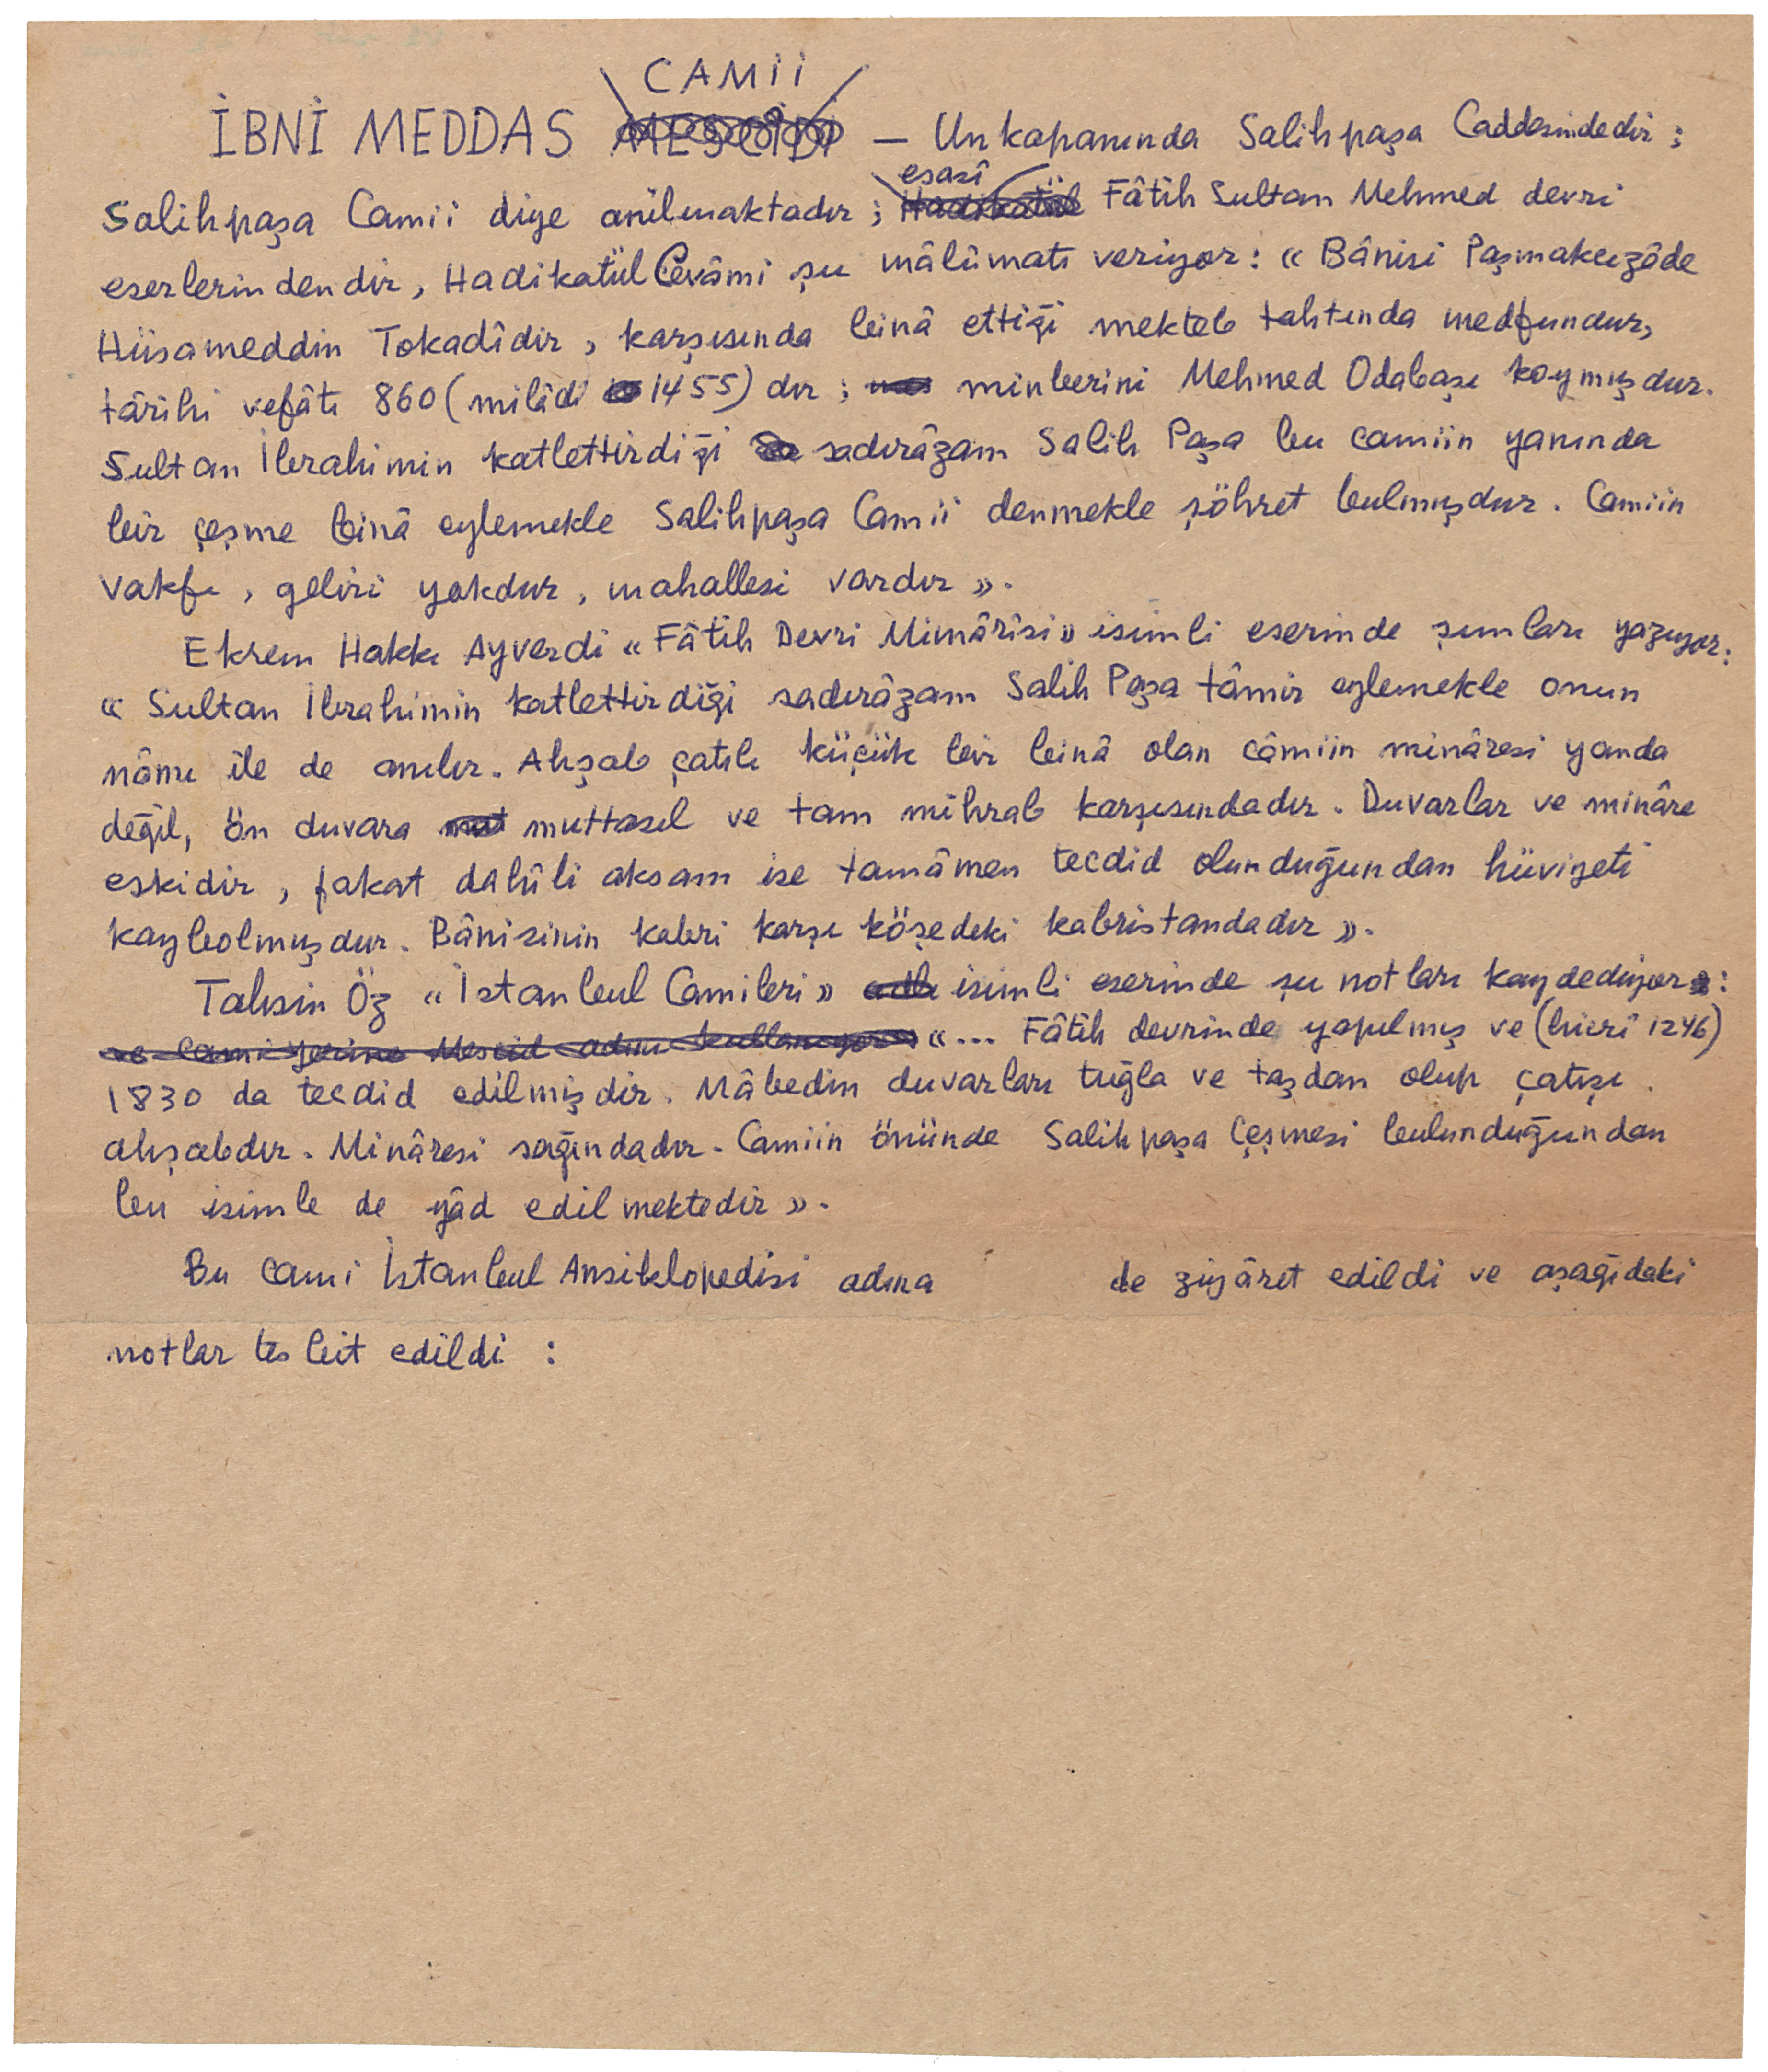 İBNİ MEDDAS CAMİİ — Unkapanında Salihpaşa Caddesindedir;
Salihpaşa Camii diye anılmaktadır; esası Fâtih Sultan Mehmed devri
eserlerindendir, Hadikatül Cevâmi şu mâlûmatı veriyor: « Bânisi Paşmakcızâde
Hüsameddin Tokadîdir, karşısında binâ ettiği mekteb tahtında medfundur,
târihi vefâtı 860 (milâdî 1455) dır; minberini Mehmed Odabaşı koymuşdur.
Sultan İbrahimin katlettirdiği sadırâzam Salih Paşa bu camiin yanında
bir çeşme binâ eylemekle Salihpaşa Camii denmekle şöhret bulmuşdur. Camiin
vakfı, geliri yokdur, mahallesi vardır ».
Ekrem Hakkı Ayverdi « Fâtih Devri Mimârisi » isimli eserinde şunları yazıyor:
« Sultan İbrahimin katlettirdiği sadırâzam Salih Paşa tâmir eylemekle onun
nâmı ile de anılır. Ahşab çatılı küçük bir binâ olan câmiin minâresi yanda
değil, ön duvara muttasıl ve tam mihrab karşısındadır. Duvarlar ve minâre
eskidir, fakat dahîli aksam ise tamâmen tecdid olunduğundan hüviyeti
kaybolmuşdur. Bânisinin kabri karşı köşedeki kabristandadır ».
Tahsin Öz « İstanbul Camileri » isimli eserinde şu notları kaydediyor:
ve Cami yerine Mescid adını kullanıyor «... Fâtih devrinde yapılmış ve (hicrî 1246)
1830 da tecdid edilmişdir. Mâbedin duvarları tuğla ve taşdan olup çatısı
ahşabdır. Minâresi sağındadır. Camiin önünde Salihpaşa Çeşmesi bulunduğundan
bu isimle de yâd edilmektedir ».
Bu cami İstanbul Ansiklopedisi adına de ziyâret edildi ve aşağıdaki
notlar tesbit edildi :